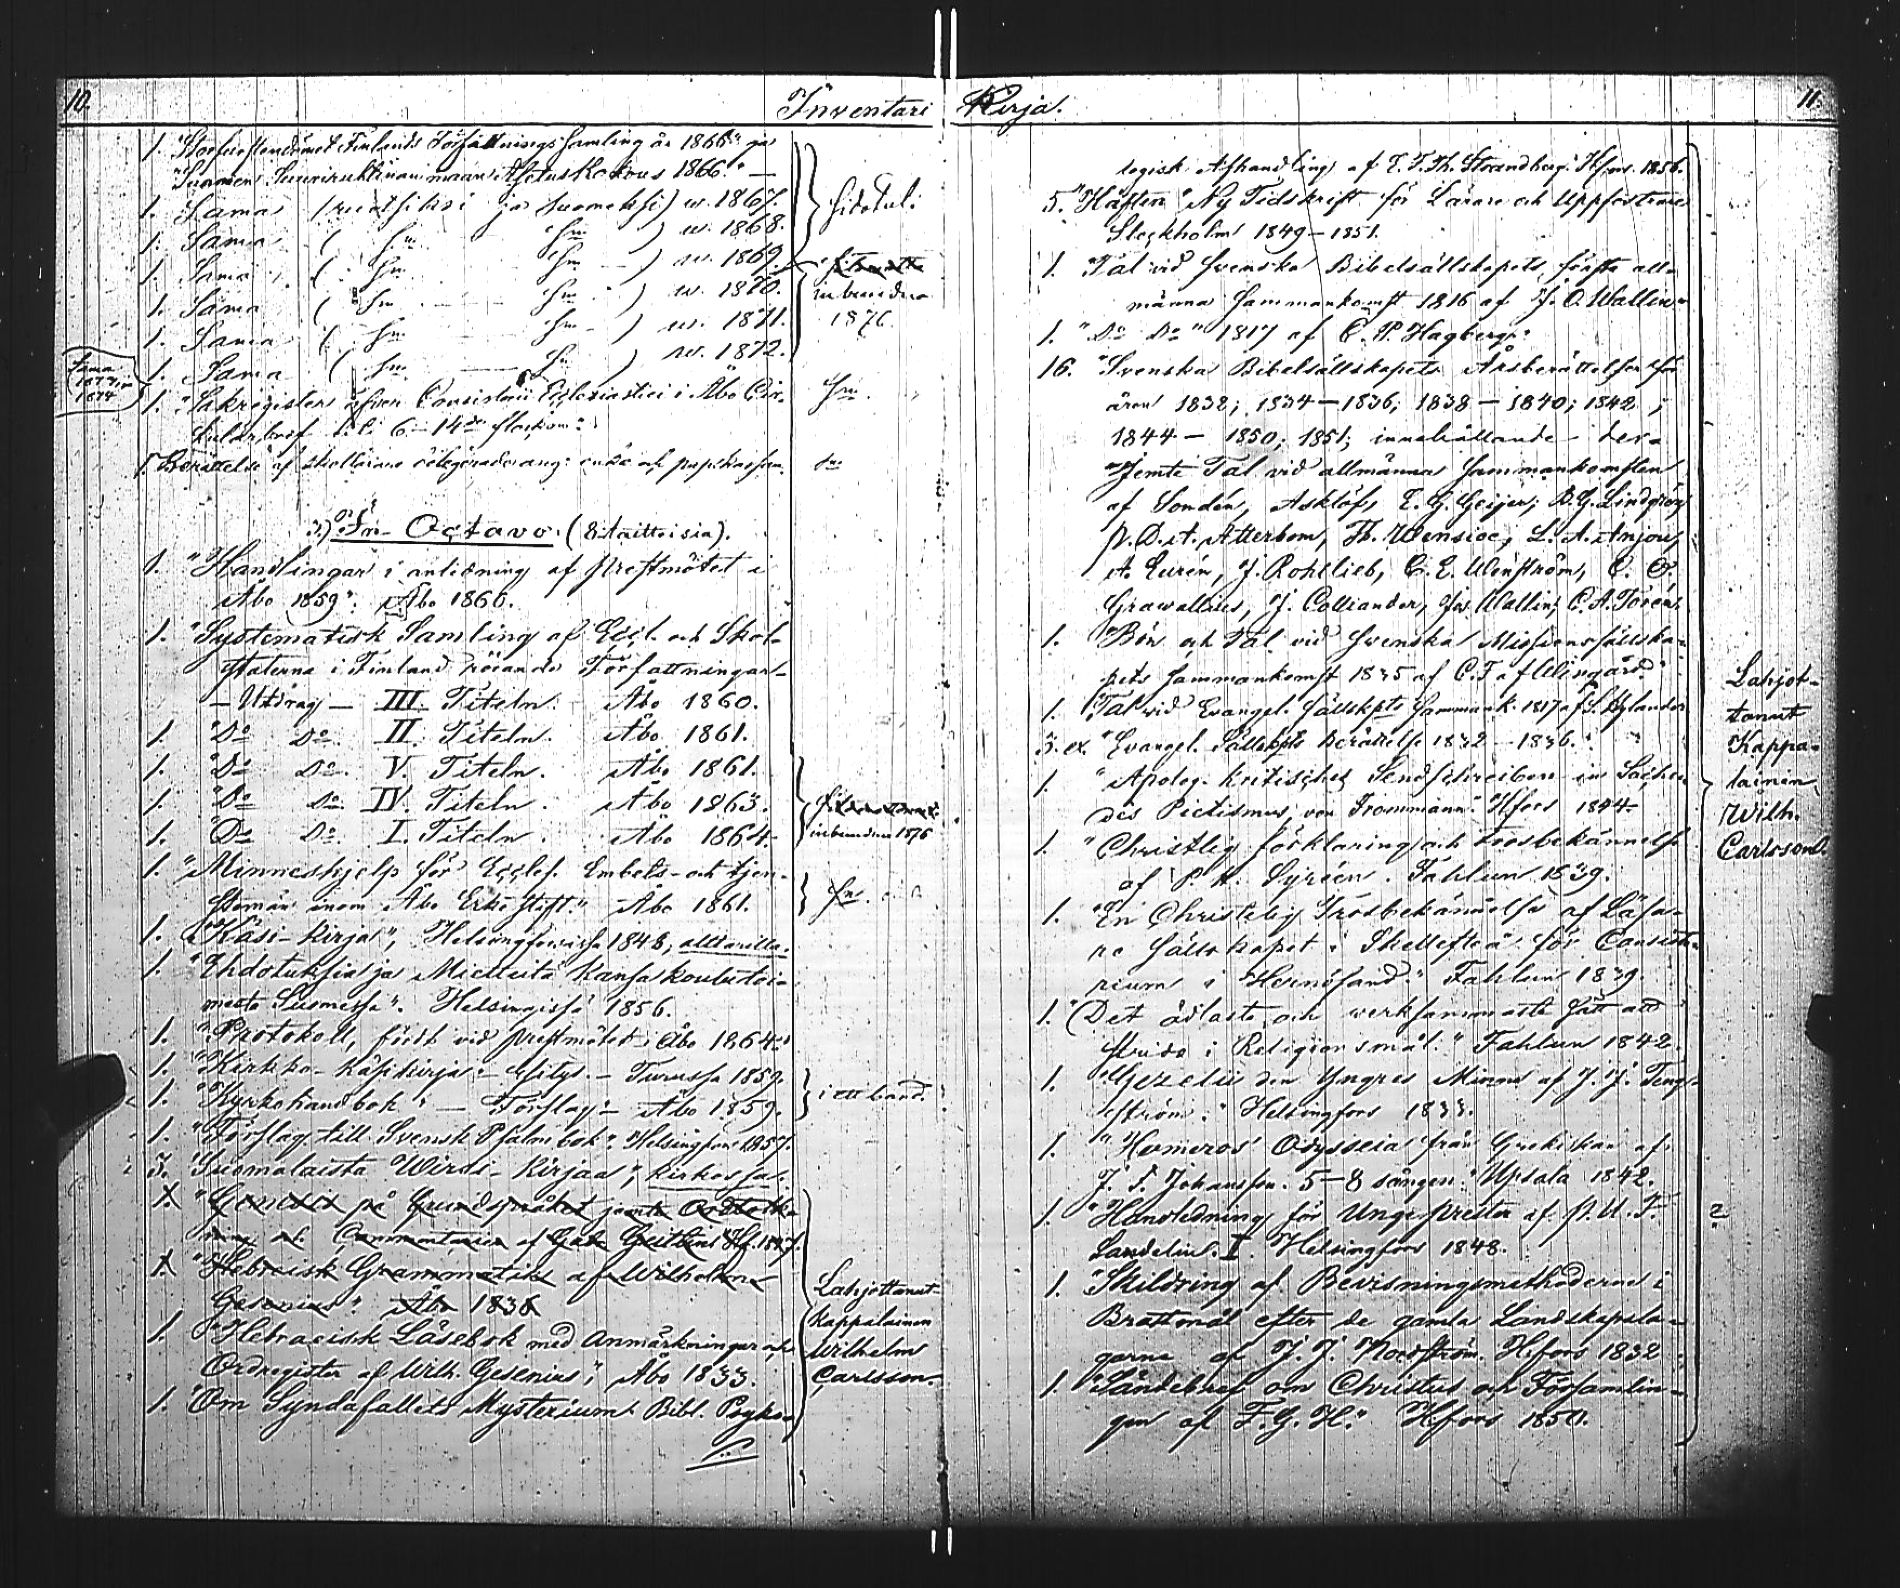 10.
Inventari Kirja.
11.
1. "Storfurstendömet Finlands Författnings Samling år 1866" ja
"Suomen Suuriruhtinanmaan Asetuskokous 1866." —
1. Sama (ruotsiksi ja suomeksi) w. 1867.
1. Sama ( Sm Sm ) w. 1868.
1. Sama ( Sm Sm ) w. 1869.
1. Sama ( Sm Sm ) w. 1870.
1. Sama ( Sm Sm ) w. 1871.
1. Sama ( Sm Sm ) w. 1872.
Sidotut.
inbundna
1876.
Sama
1873
1874
1. "Sakregister öfwer Consistorii Ecclesiastici i Åbo Cir-
kulärbref till 6–14de flockarne".
Sm.
1. Berättelse af
3.) In Octavo. (8 taittoisia).
1. "Handlingar i anledning af Prestmötet i
Åbo 1859". Åbo 1866.
1. "Systematisk Samling af Eccl. och Skol-
staterna i Finland rörande Författningar-
– Utdrag – III. Titeln. Åbo 1860.
1. "Do Do II. Titeln. Åbo 1861.
1. "Do Do. V. Titeln. Åbo 1861.
1. "Do Do IV. Titeln. Åbo 1863.
1. "Do Do. I. Titeln. Åbo 1864.
inbundna 1876
1. "Minneshjelp för Eccles. Embets- och tjen-
stemän inom Åbo Erke Stift." Åbo 1861.
Sm.
1. "Käsi-Kirja", Helsingforsissa 1848, alttarilla.
1. "Ehdotuksia ja Mietteitä Kansakoulutoi-
mesta Suomessa". Helsingissä 1856.
1. "Protokoll, fördt vid prestmötet i Åbo 1864."
1. "Kirkko-Käsikirja" – Esitys. – Turussa 1859.
1. "Kyrkohandbok" – Förslag – Åbo 1859.
i ett band.
1. "Förslag till Svensk Psalmbok". Helsingfors 1857.
3. "Suomalaista Wirsi-Kirjaa", kirkossa.
1. "Genesis på Grundspråket jemte Ordteck-
ning och Commentarier af Gab. Geitlin" Hfs. 1847.
1. "Hebreisk Grammatik af Wilhelm
Gesenius". Åbo 1838
1. "Hebraeisk Läsebok med Anmärkningar och
Ordregister af Wilh. Gesenius", Åbo 1833.
1. "Om Syndafallets Mysterium. Bibl. Psyko-
Lahjottanut
kappalainen
Wilhelm
Carlsson.
logisk Afhandling af Strandberg. Hfors. 1856.
5. Häften "Ny Tidskrift för Lärare och Uppfostrare
Stockholm 1849–1851.
1. "Tal vid Svenska Bibelsällskapets första all-
männa Sammankomst 1816 af J. O. Wallin."
1. "Do Do" 1817 af C. P. Hagberg".
16. "Svenska Bibelsällskapets Årsberättelser för
åren 1832; 1834–1836; 1838–1840; 1842;
1844–1850; 1851; innehållande der-
jemte Tal vid allmänna Sammankomsten
af Somdén, Asklöf, E. G. Geijer, B. G. Lindgren,
P. D. A. Atterbom, Th. Wensioe, L. A. Anjou,
A. Eurén, J. Rohtlieb, C. E. Wenström, C. O.
Grawallius, J. Calliander, Jos. Wallin, C. A. Torén.
1. "Bön och Tal vid Svenska Missionssällska-
pets Sammankomst 1835 af C. F. af Wingård."
1. "Tal vid Evangel. Sällskpts Sammank. 1817 af S. Nylander
3. ex. "Evangel. Sällskpts Berättelse 1832–1836."
1. "Apolog. kritisches Sendschreiben in Sachen
des Pietismus, von Frommann". Hfors 1844
1. "Christlig förklaring och trosbekännelse
af P. H. Syréen. Fahlun 1839.
1. "En Christelig Trosbekännelse af Läsa-
re Sällskapet i Skellefteå för Consisto-
rium i Hernösand." Fahlun 1839.
1. "Det ädlaste och werksammaste Sätt att
strida i Religionsmål." Fahlun 1842.
1. "Gezelii den Yngres Minne af J. J. Teng-
ström." Helsingfors 1833.
1. "Homeros' Odysseia från Grekiskan af
J. F. Johansson. 5–8 sången." Upsala 1842.
1. "Handledning för Unge Prester af P. U. F.
Sandelin. I. Helsingfors 1848.
2
1. "Skildring af Bevisningsmethoderne i
Brottmål efter de gamla Landskapsla-
garne af J. J. Nordström. Hfors 1832
1. "Sändebref om Christus och Församlin-
gen af F. G. H." Hfors 1850.
Lahjot-
tanut
Kappa-
lainen
Wilh.
Carlsson.